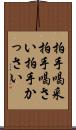 拍手喝采
拍手喝さ
い拍手か
っさい